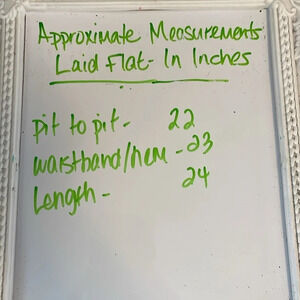 Approximate Measurements
Laid Flat - In Inches
pit to pit - 22
waistband/hem - 23
Length - 24